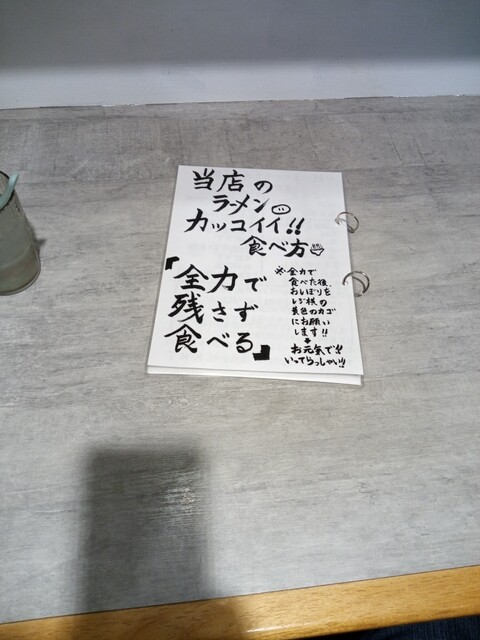 当店の
ラーメン
カッコイイ!!
食べ方
『全力で
残さず
食べる』
※全力で
食べた後、
おしぼりを
レジ横の
黄色のカゴ
にお願い
します!!
お元気で!!
いってらっしゃい!!